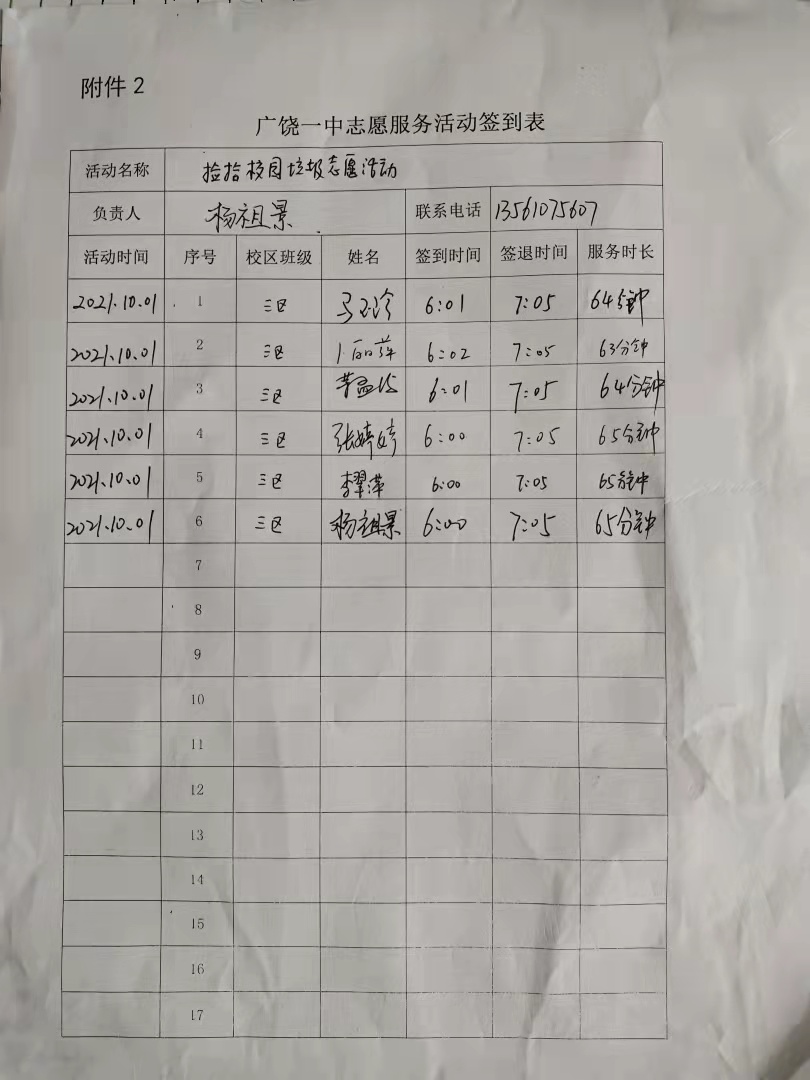 附件 2
广饶一中志愿服务活动签到表
活动名称 捡拾校园垃圾志愿活动
负责人 杨祖景 联系电话 13561075607
活动时间 序号 校区班级 姓名 签到时间 签退时间 服务时长
2021.10.01 1 三区 6:01 7:05 64分钟
2021.10.01 2 三区 6:02 7:05 63分钟
2021.10.01 3 三区 6:01 7:05 64分钟
2021.10.01 4 三区 张婷婷 6:00 7:05 65分钟
2021.10.01 5 三区 6:00 7:05 65分钟
2021.10.01 6 三区 杨祖景 6:00 7:05 65分钟
7
8
9
10
11
12
13
14
15
16
17